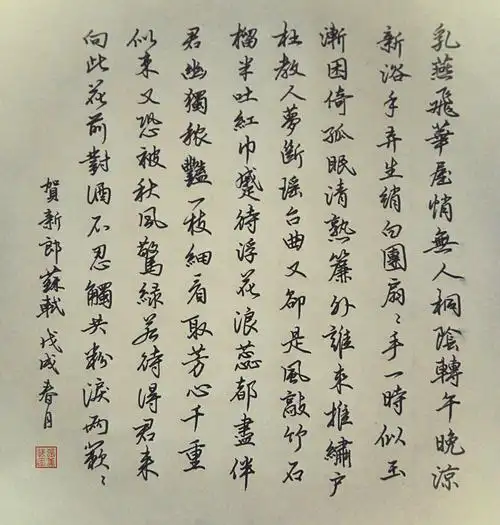 乳燕飛華屋悄無人桐陰轉午晚涼
新浴手弄生綃白團扇〻手一時似玉
漸困倚孤眠清熟簾外誰來推繡戶
枉教人夢斷瑤台曲又卻是風敲竹石
榴半吐紅巾蹙待浮花浪蕊都盡伴
君幽獨穠豔一枝細看取芳心千重
似束又恐被秋風驚綠若待得君來
向此花前對酒不忍觸共粉淚兩簌〻
賀新郎蘇軾戊戌春月